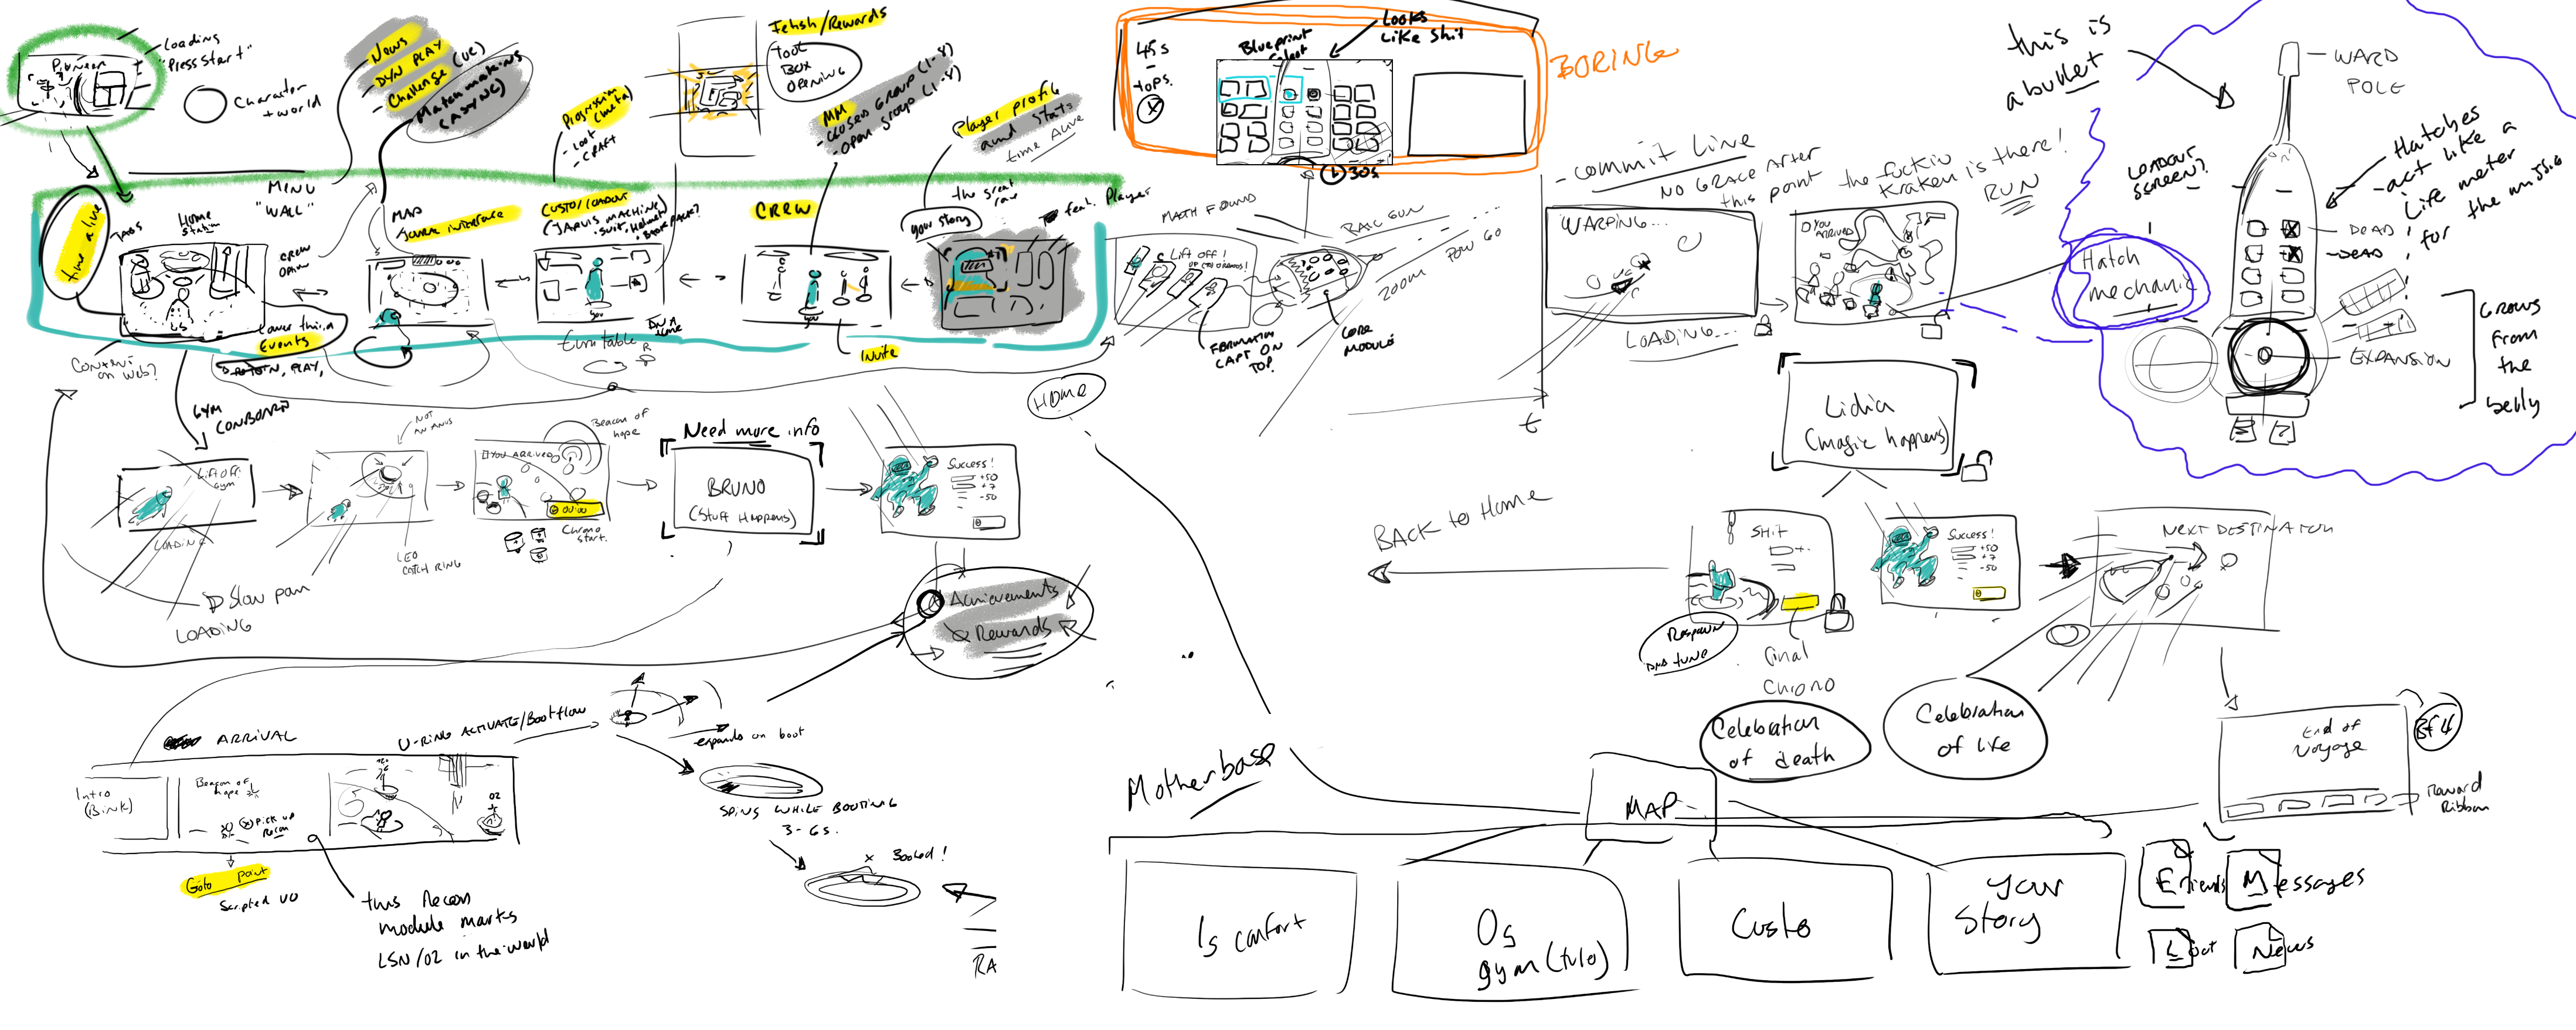 Pioneer
Loading
"Press Start"
Character
+ world
News
- DYN PLAY
- Challenge (UC)
Matchmaking
(ASYNC)
Progression
(meta)
- Loot
- CRAFT
Fetish/Rewards
Loot
Box
OPENING
MM
- closed group (1-4)
- open group (1-4)
Player profile
and stats
time Alive
MENU
"WALL"
time alive
TABS
Home
Station
CREW
OPTION
MAP
INTERFACE
CUSTO/LOADOUT
(JARVIS MACHINE)
SUIT, HELMET
BACKPACK?
YOU
CREW
YOU
Invite
the great
your story
feat. Player
Events
PLAY,
Content
on web?
turntable
45s
-
TOPS.
Blueprint
Select
Looks
Like Shit
30s
BORING
MATCH FOUND
Lift off!
FORMATION
CAPT ON
TOP?
CORE
MODULE
RAIL GUN
200M
- COMMIT LINE
NO GRACE AFTER
this point
the fuckin
Kraken is there!
RUN
WARPING...
LOADING...
YOU
ARRIVED
t
this is
a bullet
WARD
POLE
LOADOUT
SCREEN?
Hatches
- act like a
Life meter
for the mission
- DEAD
- DEAD
Hatch
mechanic
EXPANSION
GROWS
from
the
belly
HOME
GYM
ONBOARD
Lift off!
Gym
LOADING
Slow pan
LOADING
NOT
AN ANUS
LEO
CATCH RING
Beacon of
hope
YOU ARRIVED
00:00
Chrono
start.
Need more info
BRUNO
(Stuff Happens)
Success!
+50
+7
-50
Achievements
Rewards
Lidia
(magic happens)
BACK to Home
SHIT
Respawn
DNA tune
final
Chrono
Success!
+50
+7
-50
NEXT DESTINATION
Celebration
of death
Celebration
of life
End of
Voyage
BF4
Reward
Ribbon
ARRIVAL
Intro
(Bink)
Beacon of
hope
Pick up
Recon
O2
Goto point
Scripted VO
this Recon
module marks
LSN/O2 in the world
U-RING ACTIVATE/Boot flow
expands on boot
SPINS WHILE BOOTING
3-6s.
Booted!
RA
Motherbase
MAP
Is confort
Os
gym (tuto)
Custo
your
Story
Friends
Messages
Loot
News